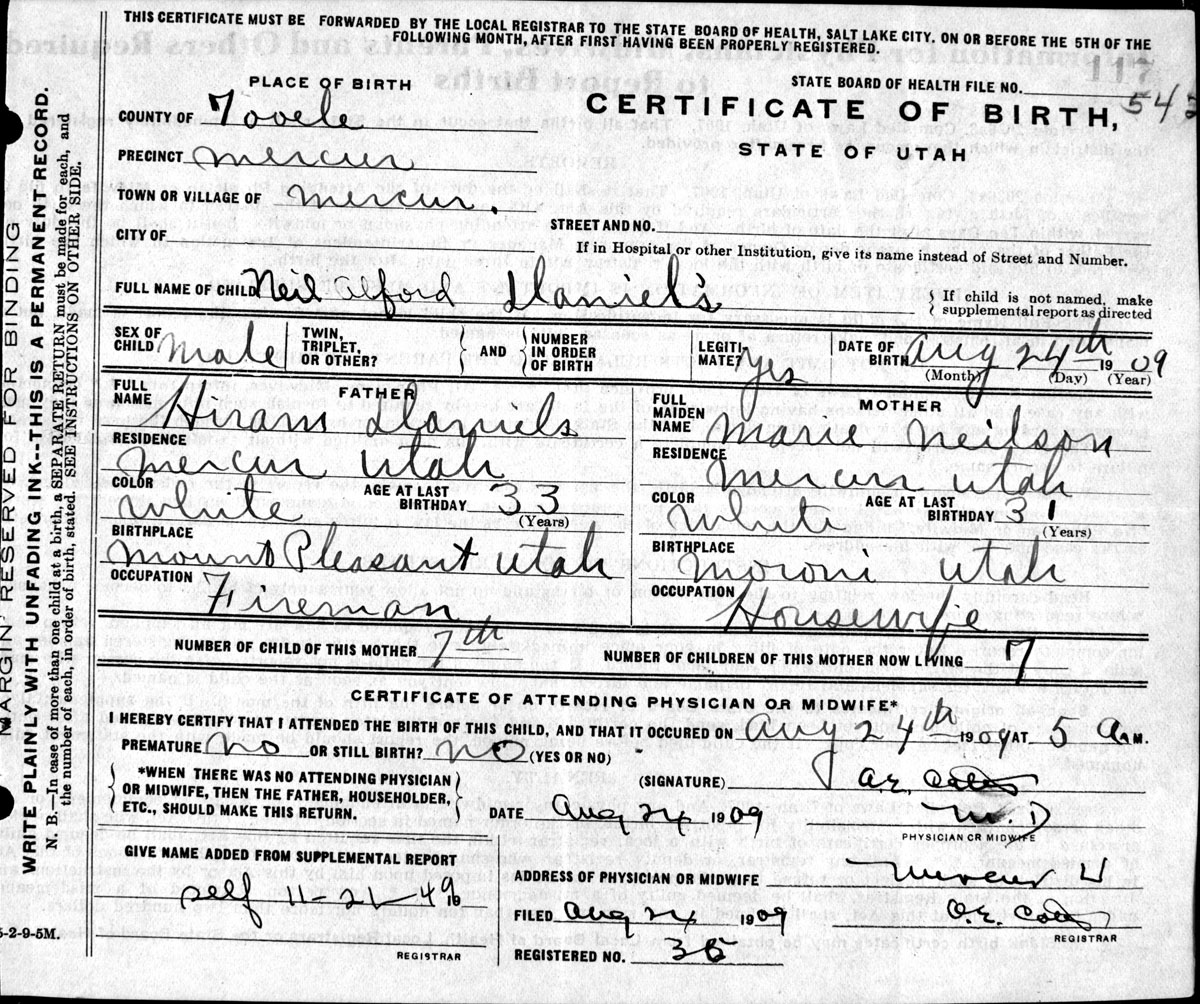 THIS CERTIFICATE MUST BE FORWARDED BY THE LOCAL REGISTRAR TO THE STATE BOARD OF HEALTH, SALT LAKE CITY. ON OR BEFORE THE 5TH OF THE
FOLLOWING MONTH, AFTER FIRST HAVING BEEN PROPERLY REGISTERED.
MARGIN RESERVED FOR BINDING
WRITE PLAINLY WITH UNFADING INK--THIS IS A PERMANENT RECORD.
N. B.—In case of more than one child at a birth, a SEPARATE RETURN must be made for each, and
the number of each, in order of birth, stated. SEE INSTRUCTIONS ON OTHER SIDE.
PLACE OF BIRTH
STATE BOARD OF HEALTH FILE NO. 543
CERTIFICATE OF BIRTH,
STATE OF UTAH
COUNTY OF Tooele
PRECINCT Mercur
TOWN OR VILLAGE OF Mercur.
CITY OF STREET AND NO.
If in Hospital or other Institution, give its name instead of Street and Number.
FULL NAME OF CHILD Neil Alford Daniels { If child is not named, make
supplemental report as directed
SEX OF CHILD Male TWIN, TRIPLET, OR OTHER? AND NUMBER IN ORDER OF BIRTH LEGITIMATE? yes DATE OF BIRTH Aug 24th 1909
(Month) (Day) (Year)
FATHER
FULL NAME Hiram Daniels
RESIDENCE Mercur Utah
COLOR White AGE AT LAST BIRTHDAY 33 (Years)
BIRTHPLACE Mount Pleasant Utah
OCCUPATION Fireman
MOTHER
FULL MAIDEN NAME Marie Neilson
RESIDENCE Mercur Utah
COLOR White AGE AT LAST BIRTHDAY 31 (Years)
BIRTHPLACE Moroni Utah
OCCUPATION Housewife
NUMBER OF CHILD OF THIS MOTHER 7th NUMBER OF CHILDREN OF THIS MOTHER NOW LIVING 7
CERTIFICATE OF ATTENDING PHYSICIAN OR MIDWIFE*
I HEREBY CERTIFY THAT I ATTENDED THE BIRTH OF THIS CHILD, AND THAT IT OCCURED ON Aug 24th 1909 AT 5 A M.
PREMATURE No OR STILL BIRTH? No (YES OR NO)
*WHEN THERE WAS NO ATTENDING PHYSICIAN
OR MIDWIFE, THEN THE FATHER, HOUSEHOLDER,
ETC., SHOULD MAKE THIS RETURN.
(SIGNATURE)
DATE Aug 24 1909 M. D
PHYSICIAN OR MIDWIFE
GIVE NAME ADDED FROM SUPPLEMENTAL REPORT
self 11-21-49 19
REGISTRAR
ADDRESS OF PHYSICIAN OR MIDWIFE Mercur U
FILED Aug 24 1909
REGISTRAR
REGISTERED NO. 35
5-2-9-5M.